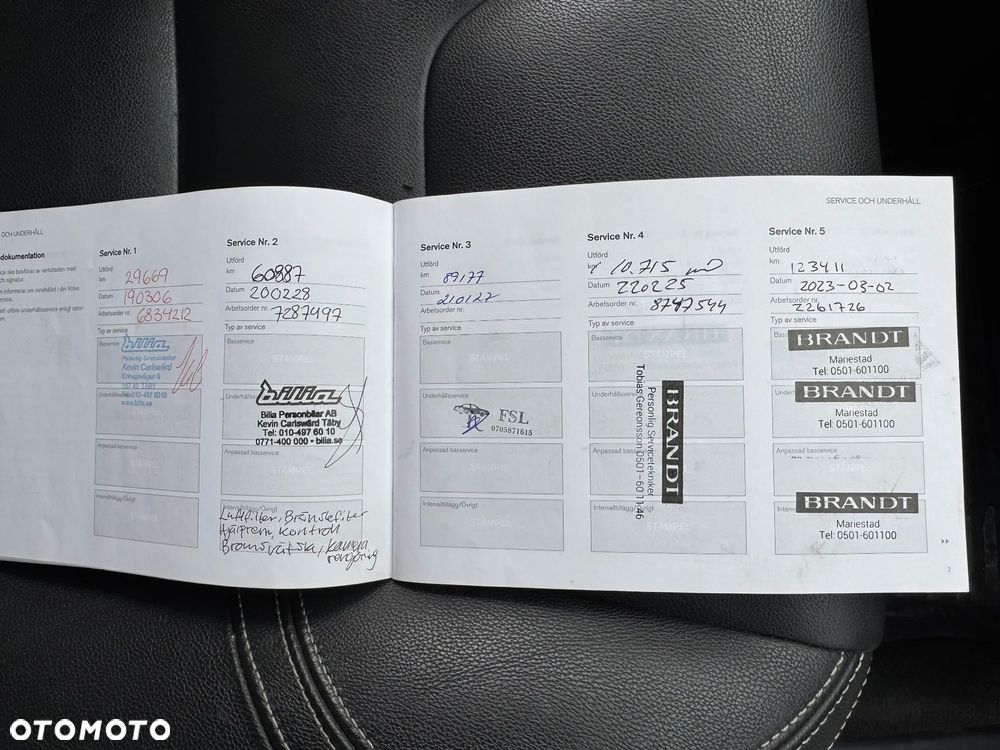 OCH UNDERHÅLL
SERVICE OCH UNDERHÅLL
dokumentation
ice ska bokföras av verkstaden med
ch signatur.
n informerar om innehållet i din Volvo
ervice.
att utföra underhållsservice enligt serv-
en.
Service Nr. 1
Utförd
km 29669
Datum 190306
Arbetsorder nr. 6834212
Typ av service
Basservice
Bilia
Personlig Servicetekniker
Kevin Carlswärd
Enhagsvägen 6
187 40 TÄBY
Tel: 010-497 6010
www.bilia.se
Anpassad basservice
Intervalltillägg/Övrigt
Service Nr. 2
Utförd
km 60887
Datum 200228
Arbetsorder nr. 7287497
Typ av service
Basservice
STÄMPEL
Underhållsservice
Bilia
Bilia Personbilar AB
Kevin Carlswärd Täby
Tel: 010-497 60 10
0771-400 000 • bilia.se
Anpassad basservice
STÄMPEL
Intervalltillägg/Övrigt
Luftfilter, Bränslefilter
Hjälprem, kontroll
Bromsvätska, kamera
rengöring
Service Nr. 3
Utförd
km 89177
Datum 210127
Arbetsorder nr.
Typ av service
Basservice
STÄMPEL
Underhållsservice
FSL
0705871615
Anpassad basservice
STÄMPEL
Intervalltillägg/Övrigt
STÄMPEL
Service Nr. 4
Utförd
km 10.715 mil
Datum 220225
Arbetsorder nr. 8747544
Typ av service
Basservice
BRANDT
Personlig Servicetekniker
Tobias Gereonsson 0501-60 11 46
Anpassad basservice
Intervalltillägg/Övrigt
STÄMPEL
Service Nr. 5
Utförd
km 123411
Datum 2023-03-02
Arbetsorder nr. 2261726
Typ av service
BRANDT
Mariestad
Tel: 0501-601100
BRANDT
Mariestad
Tel: 0501-601100
Anpassad basservice
STÄMPEL
BRANDT
Mariestad
Tel: 0501-601100
7
OTOMOTO